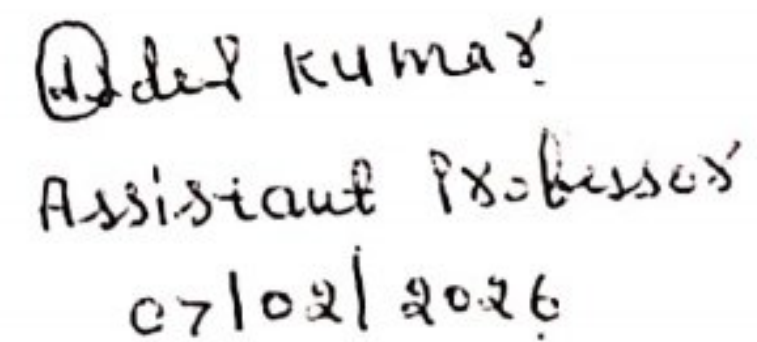 Kumar
Assistant Professor
07/02/2026